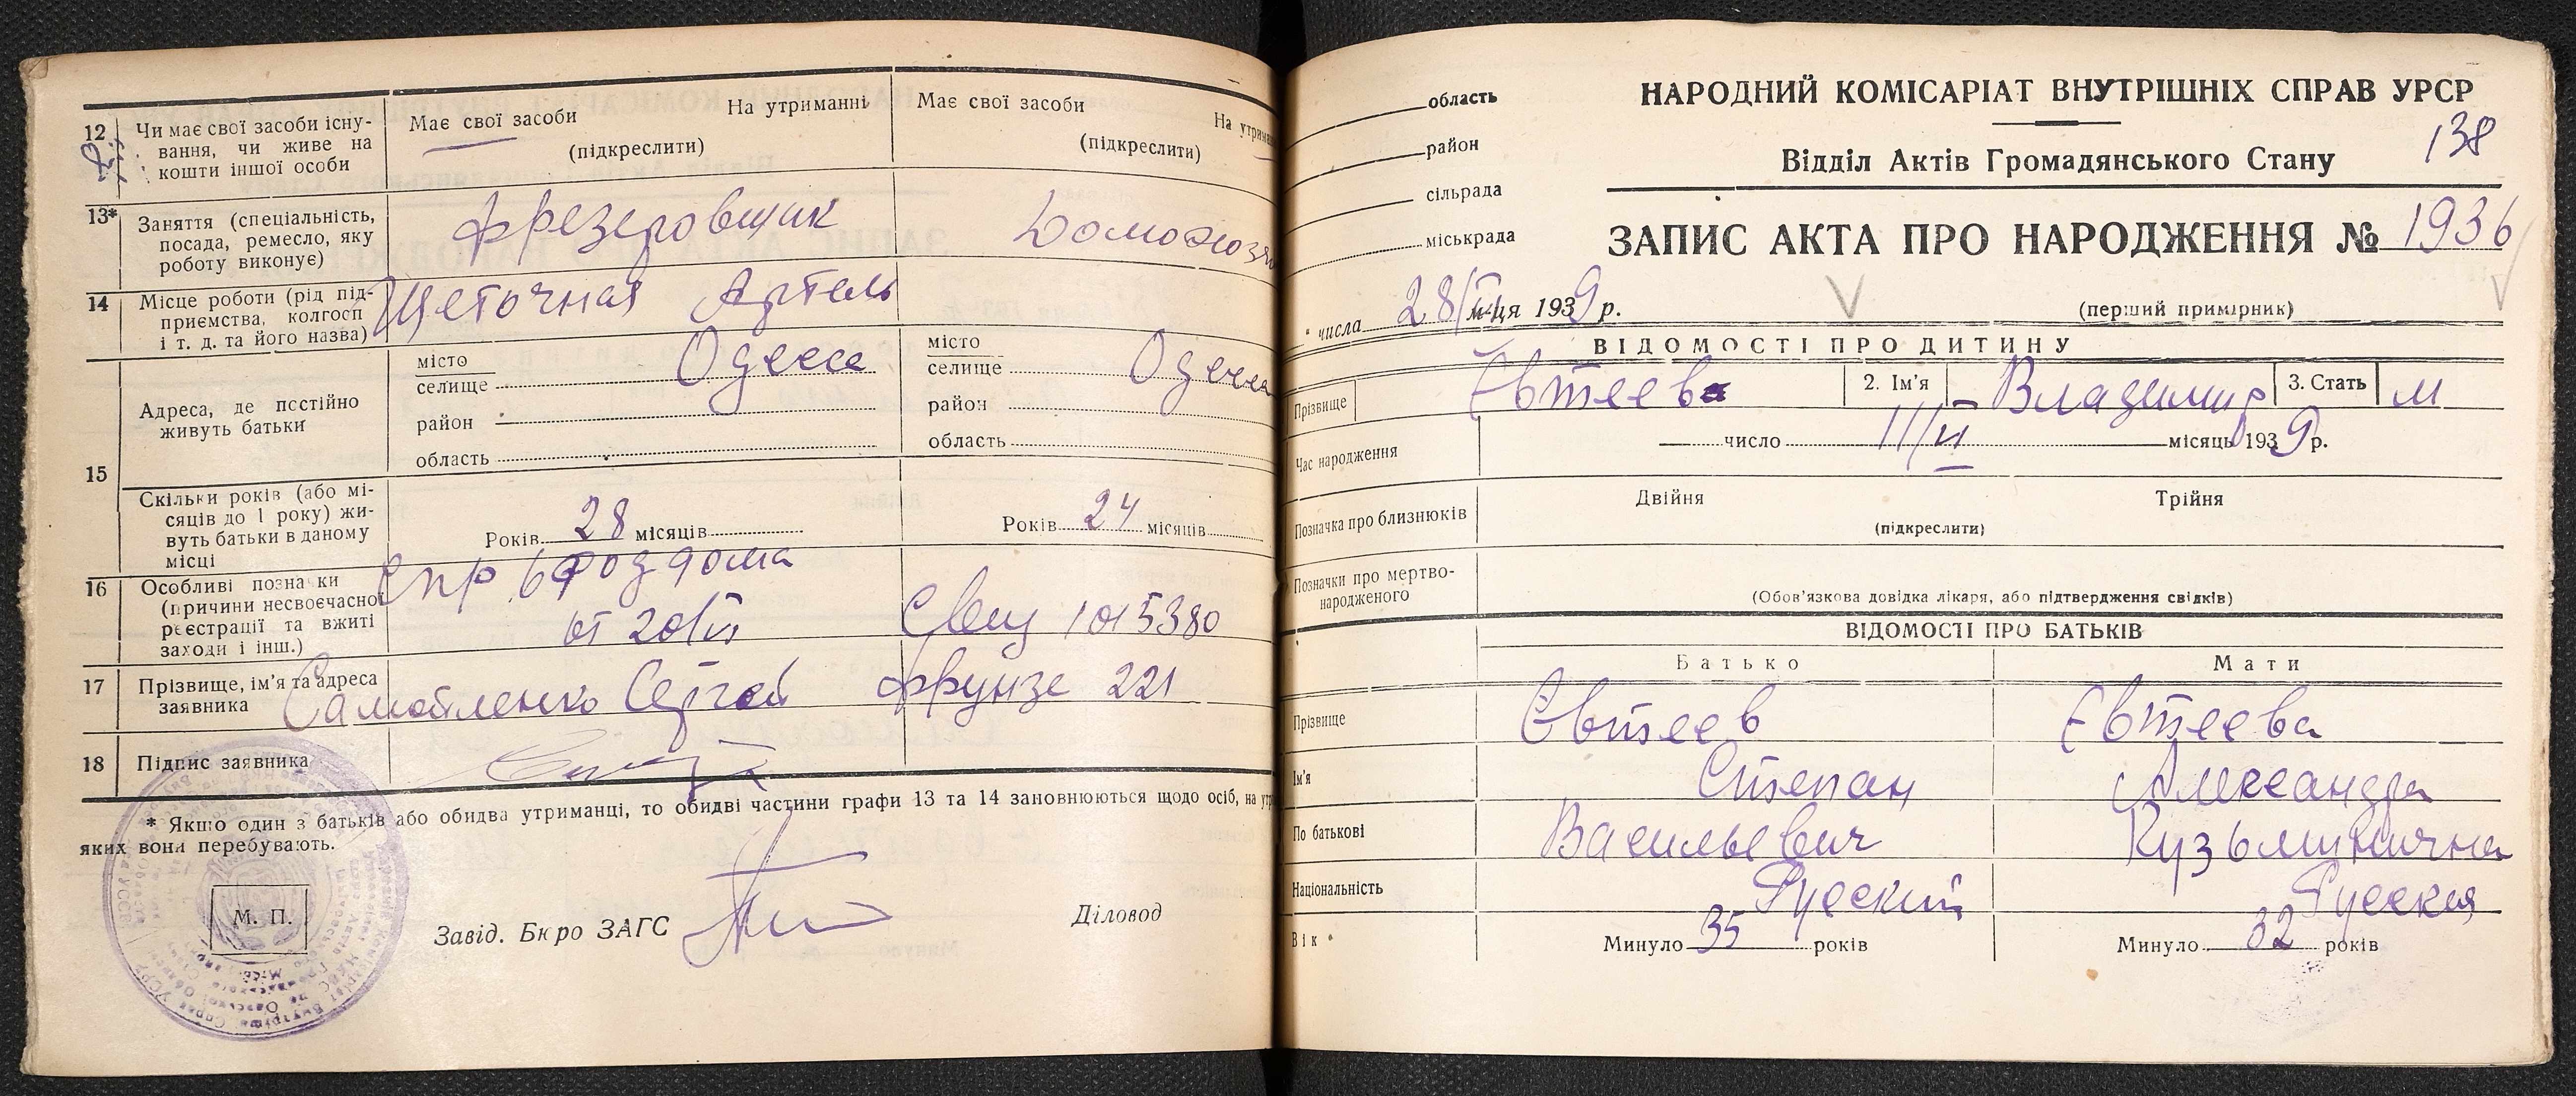 12
Чи має свої засоби існу-
вання, чи живе на
кошти іншої особи
Має свої засоби
На утриманні
(підкреслити)
Має свої засоби
На утриман
(підкреслити)
13*
Заняття (спеціальність,
посада, ремесло, яку
роботу виконує)
Фрезеровщик
Домохозя
14
Місце роботи (рід під-
приємства, колгосп
і т. д. та його назва)
Щеточная Артель
15
Адреса, де постійно
живуть батьки
місто
селище
Одесса
район
область
місто
селище
Одесса
район
область
Скільки років (або мі-
сяців до 1 року) жи-
вуть батьки в даному
місці
Років 28 місяців
Років 24 місяців
16
Особливі позначки
(причини несвоєчасної
реєстрації та вжиті
заходи і інш.)
Спр 6 роддома
от 20/VI
1015380
17
Прізвище, ім'я та адреса
заявника
Самойленко Сергей Фрунзе 221
18
Підпис заявника
* Якщо один з батьків або обидва утриманці, то обидві частини графи 13 та 14 заповнюються щодо осіб, на утр
яких вони перебувають.
М. П.
Завід. Бюро ЗАГС
Діловод
область
район
сільрада
міськрада
НАРОДНИЙ КОМІСАРІАТ ВНУТРІШНІХ СПРАВ УРСР
138
Відділ Актів Громадянського Стану
ЗАПИС АКТА ПРО НАРОДЖЕННЯ № 1936
числа 28/VI м-ця 1939 р.
(перший примірник)
ВІДОМОСТІ ПРО ДИТИНУ
Прізвище
Евтеев
2. Ім'я
Владимир
3. Стать
м
Час народження
число 11/VI місяць 1939 р.
Позначка про близнюків
Двійня
Трійня
(підкреслити)
Позначки про мертво-
народженого
(Обов'язкова довідка лікаря, або підтвердження свідків)
ВІДОМОСТІ ПРО БАТЬКІВ
Батько
Мати
Прізвище
Евтеев
Евтеева
Ім'я
Степан
Александра
По батькові
Васильевич
Кузьминична
Національність
Русский
Русская
Вік
Минуло 35 років
Минуло 32 років